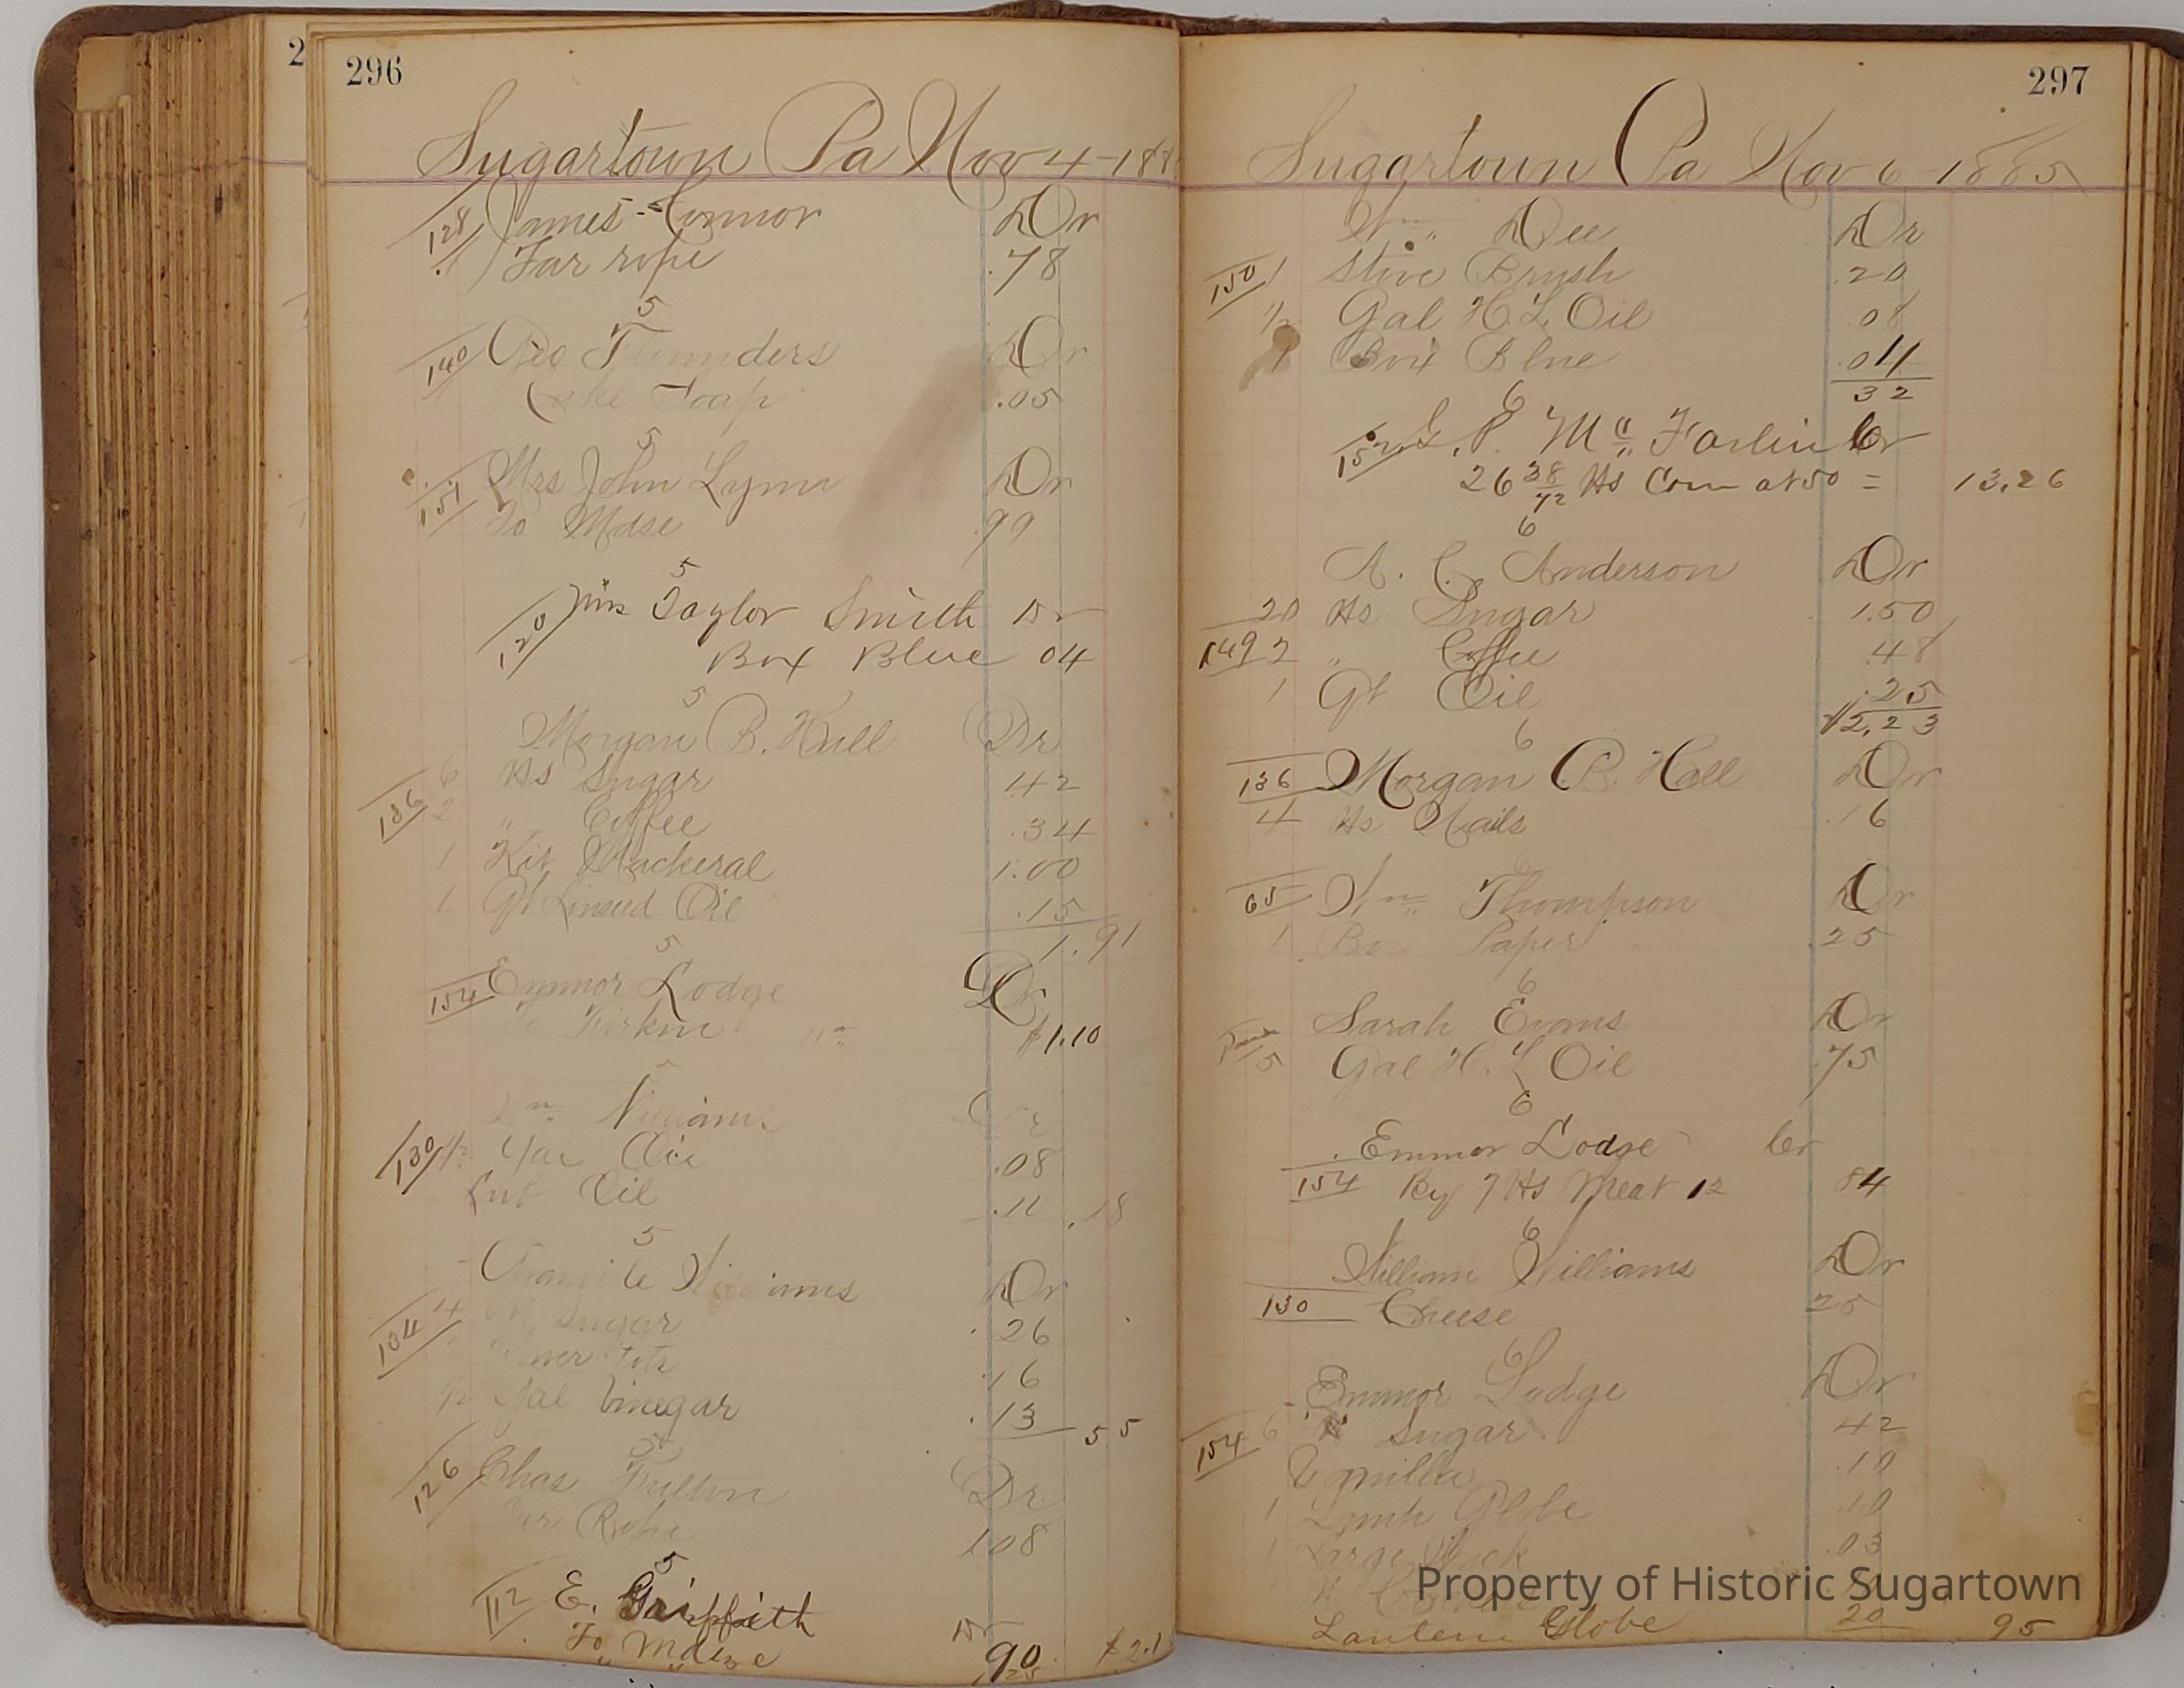 2
296
Sugartown Pa Nov 4-188
128 James Connor Dr
1 Tar rope .78
5
140 Geo Flounders Dr
Cake Soap .05
5
151 Mrs John Lynn Dr
To Mdse .99
5
120 Taylor Smith Dr
Box Blue 04
5
Morgan B. Hall Dr
6 lbs Sugar .42
136 2 " Coffee .34
1 Kit Mackeral 1.00
1 Qt Linseed Oil .15
1.91
5
154 Emmor Lodge Dr
To Firkin $1.10
5
Wm Williams Dr
130 1/2 Gal Oil .08
Lub Oil .10 .18
5
Williams Dr
134 4 lbs Sugar .26
.16
1/2 Gal Vinegar .13 55
5
126 Chas Fulton Dr
Tar Rope 1.08
5
112 E. Griffith Dr
To Mdse 90 $2.1
297
Sugartown Pa Nov 6-1885
Wm Dee Dr
150 1 Stove Brush .20
1/2 Gal H.L. Oil .08
1 Box Blue .04
32
6
152 P. Mc Farlin Cr
26 38/72 lbs Corn at 50 = 13.26
6
A. C. Anderson Dr
20 lbs Sugar 1.50
149 2 " Coffee .48
1 Qt Oil .25
$2.23
6
136 Morgan B. Hall Dr
4 lbs Nails .16
6
65 Wm Thompson Dr
1 Paper .25
6
Sarah Evans Dr
5 Gal H.L. Oil .75
6
Emmor Lodge Cr
154 By 7 lbs Meat 12 84
6
William Williams Dr
130 Cheese 25
6
Emmor Lodge Dr
154 6 " Sugar 42
Vanilla .10
1 Lamp Globe .10
1 Large Wick .03
Lantern Globe 20 95
Property of Historic Sugartown